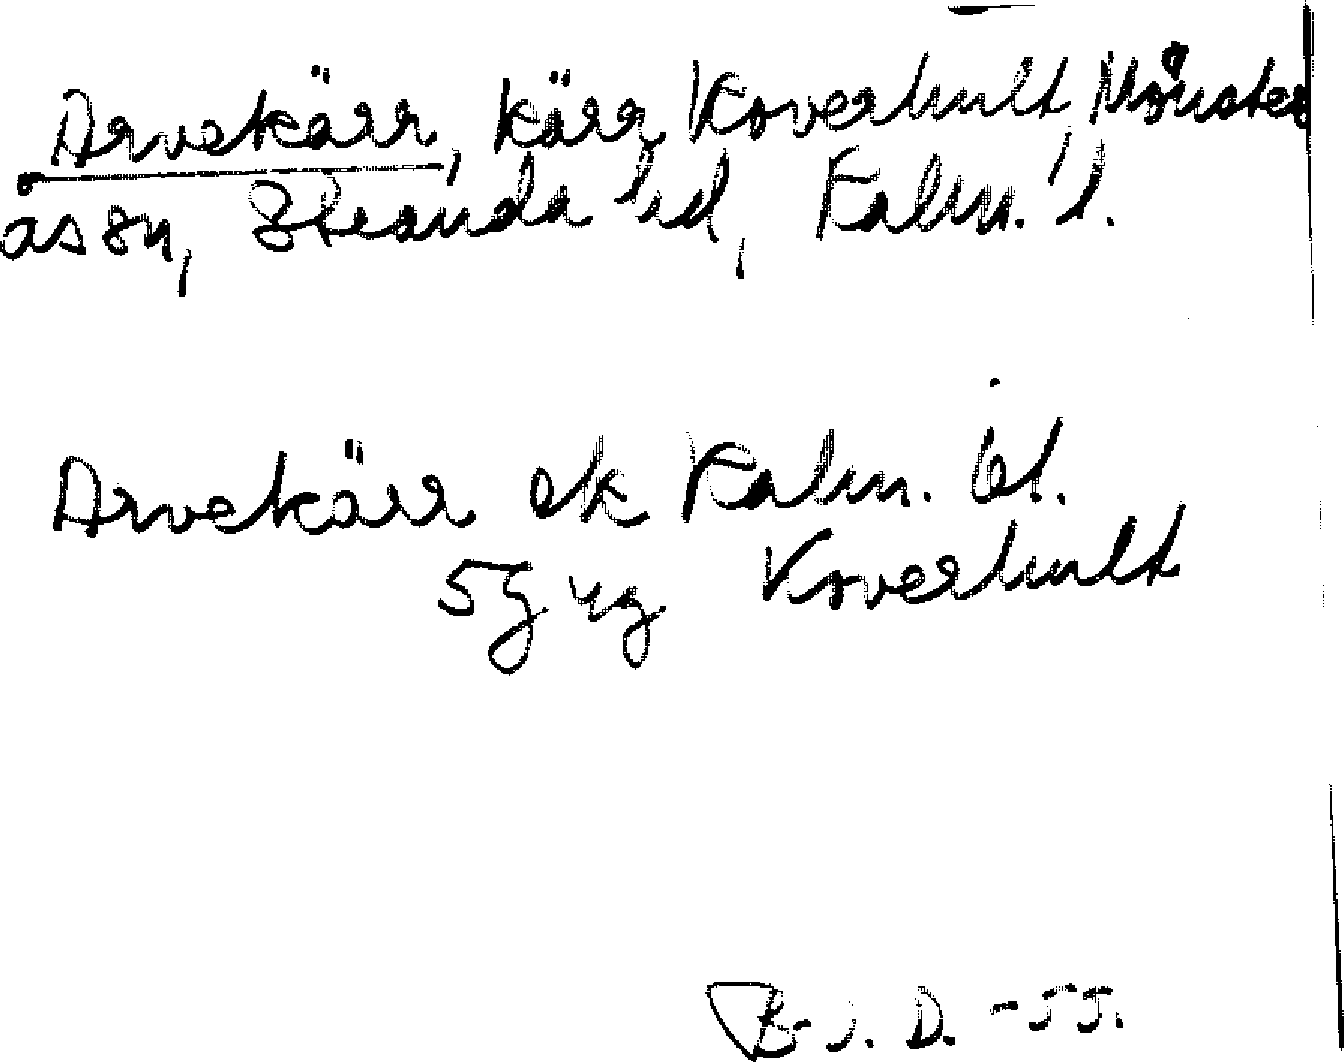 Arvekärr, kärr, Koverhult, Mönster
ås sn, Stranda hd, Kalm. l.
Arvekärr ek Kalm. l.
5g ug Koverhult
B. J. D. -55.